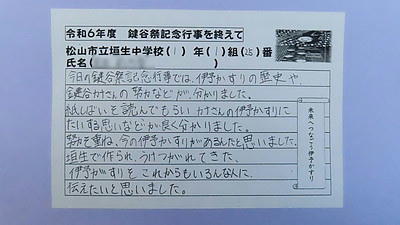 令和6年度　鍵谷祭記念行事を終えて
松山市立垣生中学校(1)年(1)組(25)番
氏名(　　　　　)
今日の鍵谷祭記念行事では、伊予かすりの歴史や、
鍵谷カナさんの努力などが、分かりました。
紙しばいを読んでもらいカナさんの伊予かすりに
たいする思いなどが良く分かりました。
努力を重ね、今の伊予かすりがあるんだと思いました。
垣生で作られ、うけつがれてきた、
伊予がすりをこれからもいろんな人に
伝えたいと思いました。
未来へつなごう伊予かすり